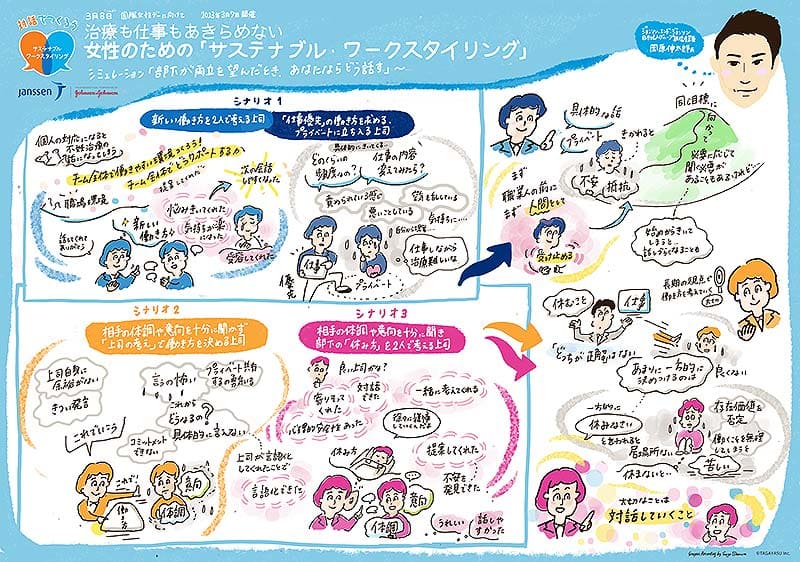 対話でつくろう
サステナブル
ワークスタイリング
janssen
Johnson & Johnson
3月8日 国際女性デーに向けて 2023年3月7日 開催
治療も仕事もあきらめない
女性のための「サステナブル・ワークスタイリング」
シミュレーション「部下が両立を望んだとき、あなたならどう話す」〜
シナリオ1
新しい働き方を2人で考える上司
個人の対応になると
不妊治療の
話になってしまう
チーム全体で働きやすい環境つくろう!
チーム全体でどうサポートするか
提案してくれた
次の会話
しやすくなった
職場環境
悩みきいてくれた
気持ちが楽に
なった
新しい
働き方
話してくれて
ありがとう
受容してくれた
「仕事優先」の働き方を求める、
プライベートに立ち入る上司
具体的にきいてくる…
どのくらいの
頻度なの?
仕事の内容
変えてみたら?
責められている感じ
悪いことしている
気持ちに…
仕事しながら
治療難しいな
仕事
優先
プライベート
シナリオ2
相手の体調や意向を十分に聞かず
「上司の考え」で働き方を決める上司
上司自身に
余裕がない
きつい発言
言うの怖い
プライベート共有
するの勇気いる
これから
どうなるの?
具体的に言えない
コミットメント
できない
これでいこう
これで!
意向
体調
働き方
シナリオ3
相手の体調や意向を十分に聞き
部下の「休み方」を2人で考える上司
良い上司かな?
寄りそって
くれた
対話
できた
一緒に考えてくれる
心理的安全性あった
提案してくれた
休み方
上司が言語化
してくれたことで
言語化できた
不安を
発見できた
意向
体調
うれしい
話しや
すかった
具体的な話
プライベート
きかれると
不安
抵抗
同じ目標に
向かって
必要に応じて
聞く必要が
あることもあるけれど
まず
職業人の前に
まず人間として
受け止める
始めからきいて
しまうと
話しづらくなることも
長期の視点で
働き方を考えていく
休むこと
仕事
「どっちが正解」はない
あまりに一方的に
決めつけるのは
良くない
一方的に
休みなさい
と言われると
居場所ない
休まないと…
存在価値を
否定
働くことを無理
してしまうと
苦しい
大切なことは
対話していくこと
©TAGAYASU Inc.